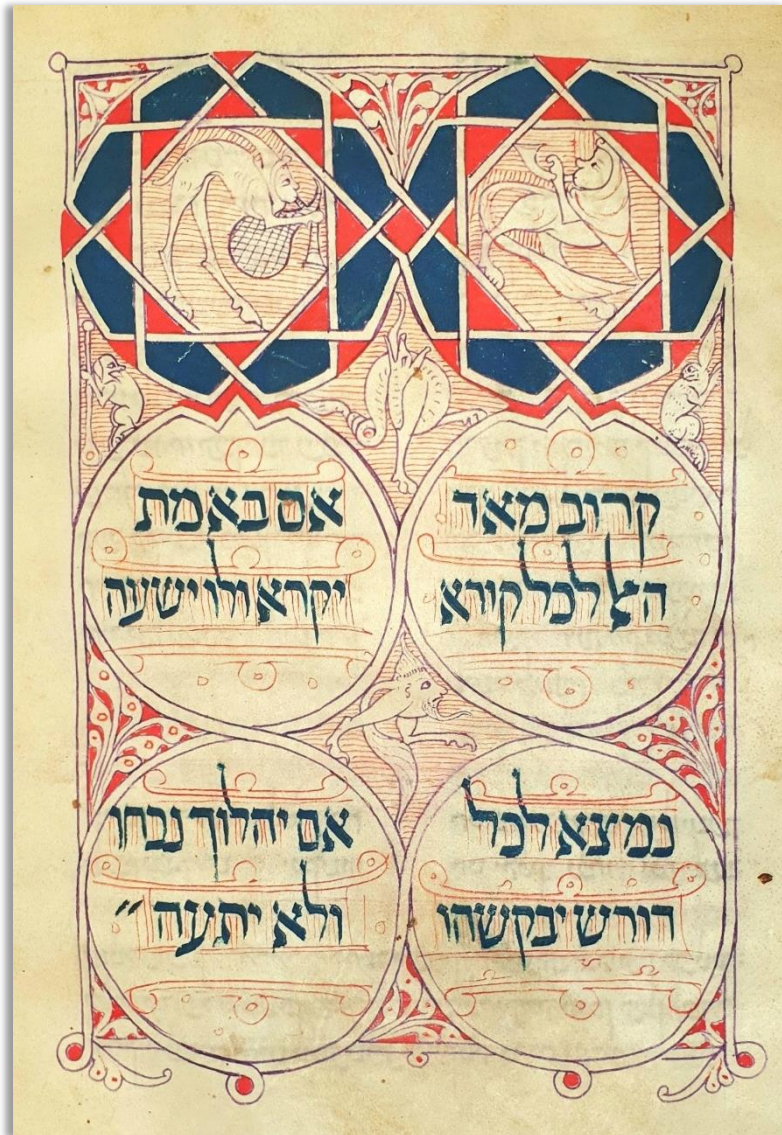 קרוב מאד
האל לכל קורא
אם באמת
יקרא ולו ישעה
נמצא לכל
דורש יבקשהו
אם יהלוך נכחו
ולא יתעה״